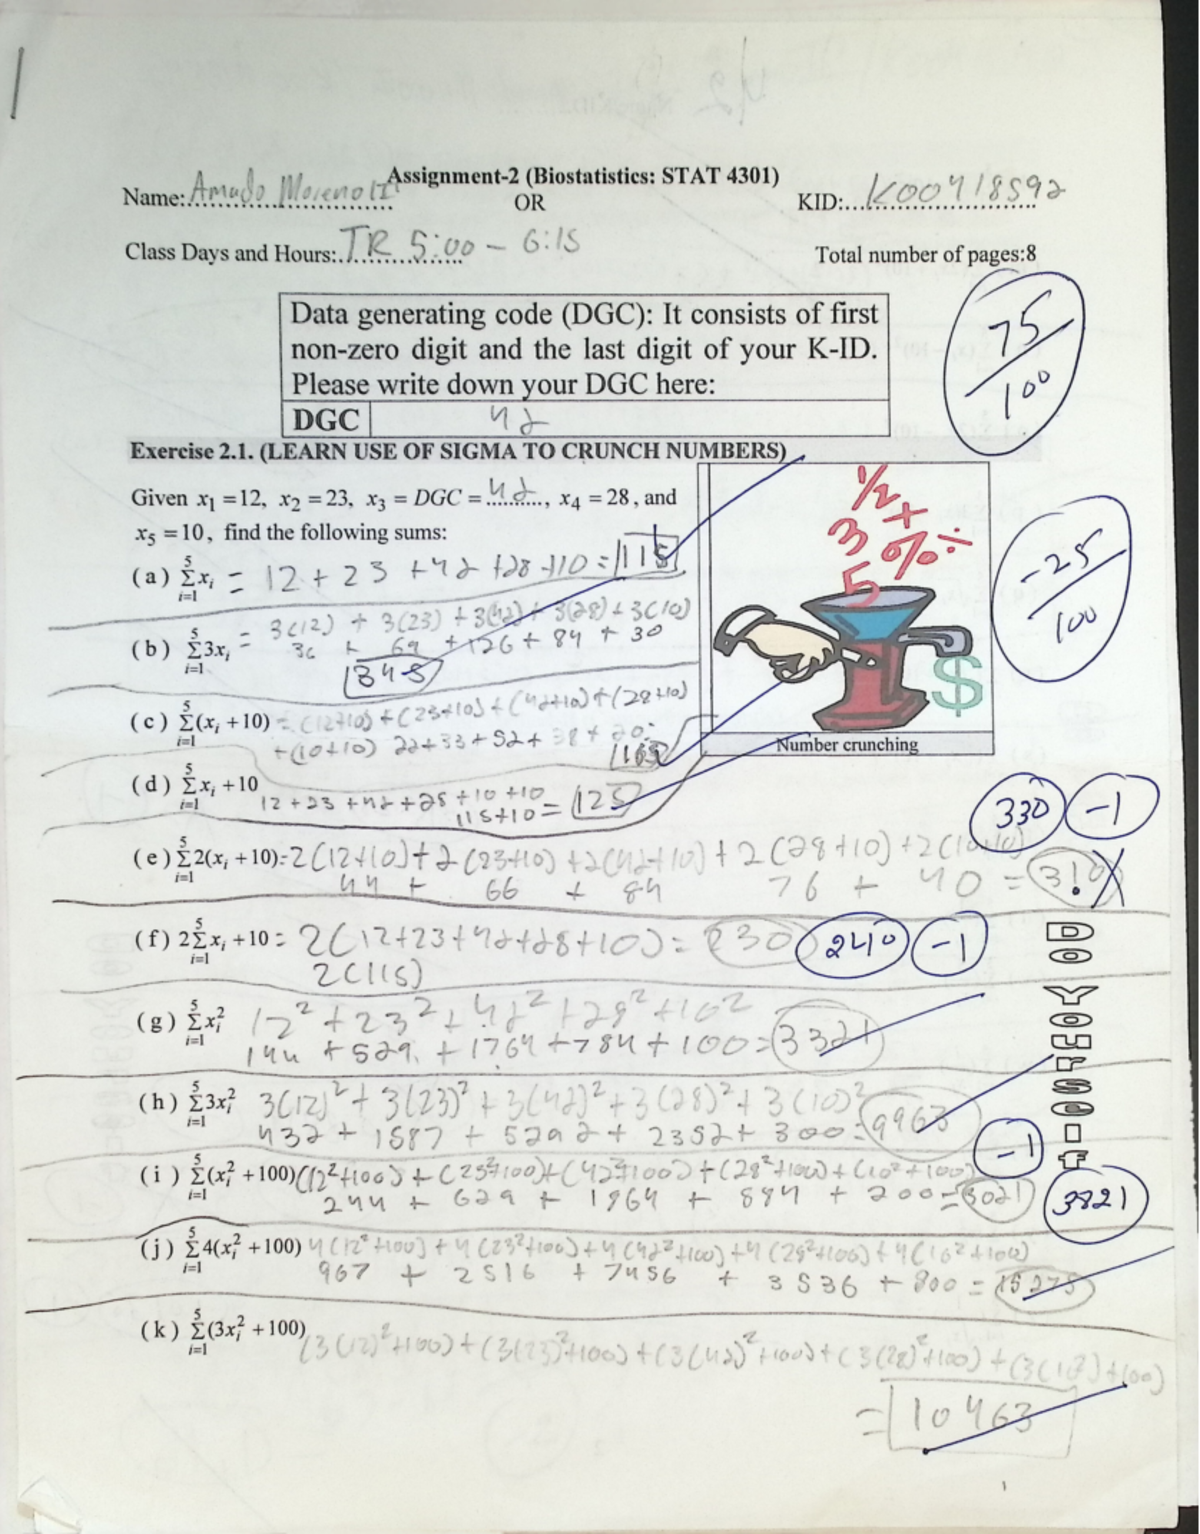 Assignment-2 (Biostatistics: STAT 4301)
Name: Amado Moreno II OR KID: K00418592
Class Days and Hours: TR 5:00 - 6:15 Total number of pages:8
75/100
Data generating code (DGC): It consists of first
non-zero digit and the last digit of your K-ID.
Please write down your DGC here:
DGC 42
Exercise 2.1. (LEARN USE OF SIGMA TO CRUNCH NUMBERS)
Given x₁ =12, x₂ =23, x₃ = DGC = 42, x₄ =28, and
x₅ =10, find the following sums:
-25/100
(a) Σᵢ₌₁⁵ xᵢ = 12 + 23 + 42 + 28 + 10 = 115
(b) Σᵢ₌₁⁵ 3xᵢ = 3(12) + 3(23) + 3(42) + 3(28) + 3(10)
36 + 69 + 126 + 84 + 30
345
(c) Σᵢ₌₁⁵ (xᵢ +10) = (12+10) + (23+10) + (42+10) + (28+10)
+(10+10) 22+33+52+38+20=
165
Number crunching
(d) Σᵢ₌₁⁵ xᵢ +10
12+23+42+28+10+10
115+10= 125
330 -1
(e) Σᵢ₌₁⁵ 2(xᵢ +10)=2(12+10)+2(23+10)+2(42+10)+2(28+10)+2(10+10)
44 + 66 + 84 76 + 40 = 310
(f) 2Σᵢ₌₁⁵ xᵢ +10 = 2(12+23+42+28+10)= 230 240 -1
2(115)
Do Yourself
(g) Σᵢ₌₁⁵ xᵢ² 12² + 23² + 42² + 28² + 10²
144 + 529 + 1764 + 784 + 100 = 3321
(h) Σᵢ₌₁⁵ 3xᵢ² 3(12)² + 3(23)² + 3(42)² + 3(28)² + 3(10)²
432 + 1587 + 5292 + 2352 + 300 = 9963
-1
(i) Σᵢ₌₁⁵ (xᵢ² +100) (12²+100) + (23²+100) + (42²+100) + (28²+100) + (10²+100)
244 + 629 + 1864 + 884 + 200 = 3021 3821
(j) Σᵢ₌₁⁵ 4(xᵢ² +100) 4(12²+100) + 4(23²+100) + 4(42²+100) + 4(28²+100) + 4(10²+100)
967 + 2516 + 7456 + 3536 + 800 = 15275
(k) Σᵢ₌₁⁵ (3xᵢ² +100) (3(12)²+100) + (3(23)²+100) + (3(42)²+100) + (3(28)²+100) + (3(10²)+100)
= 10463
1